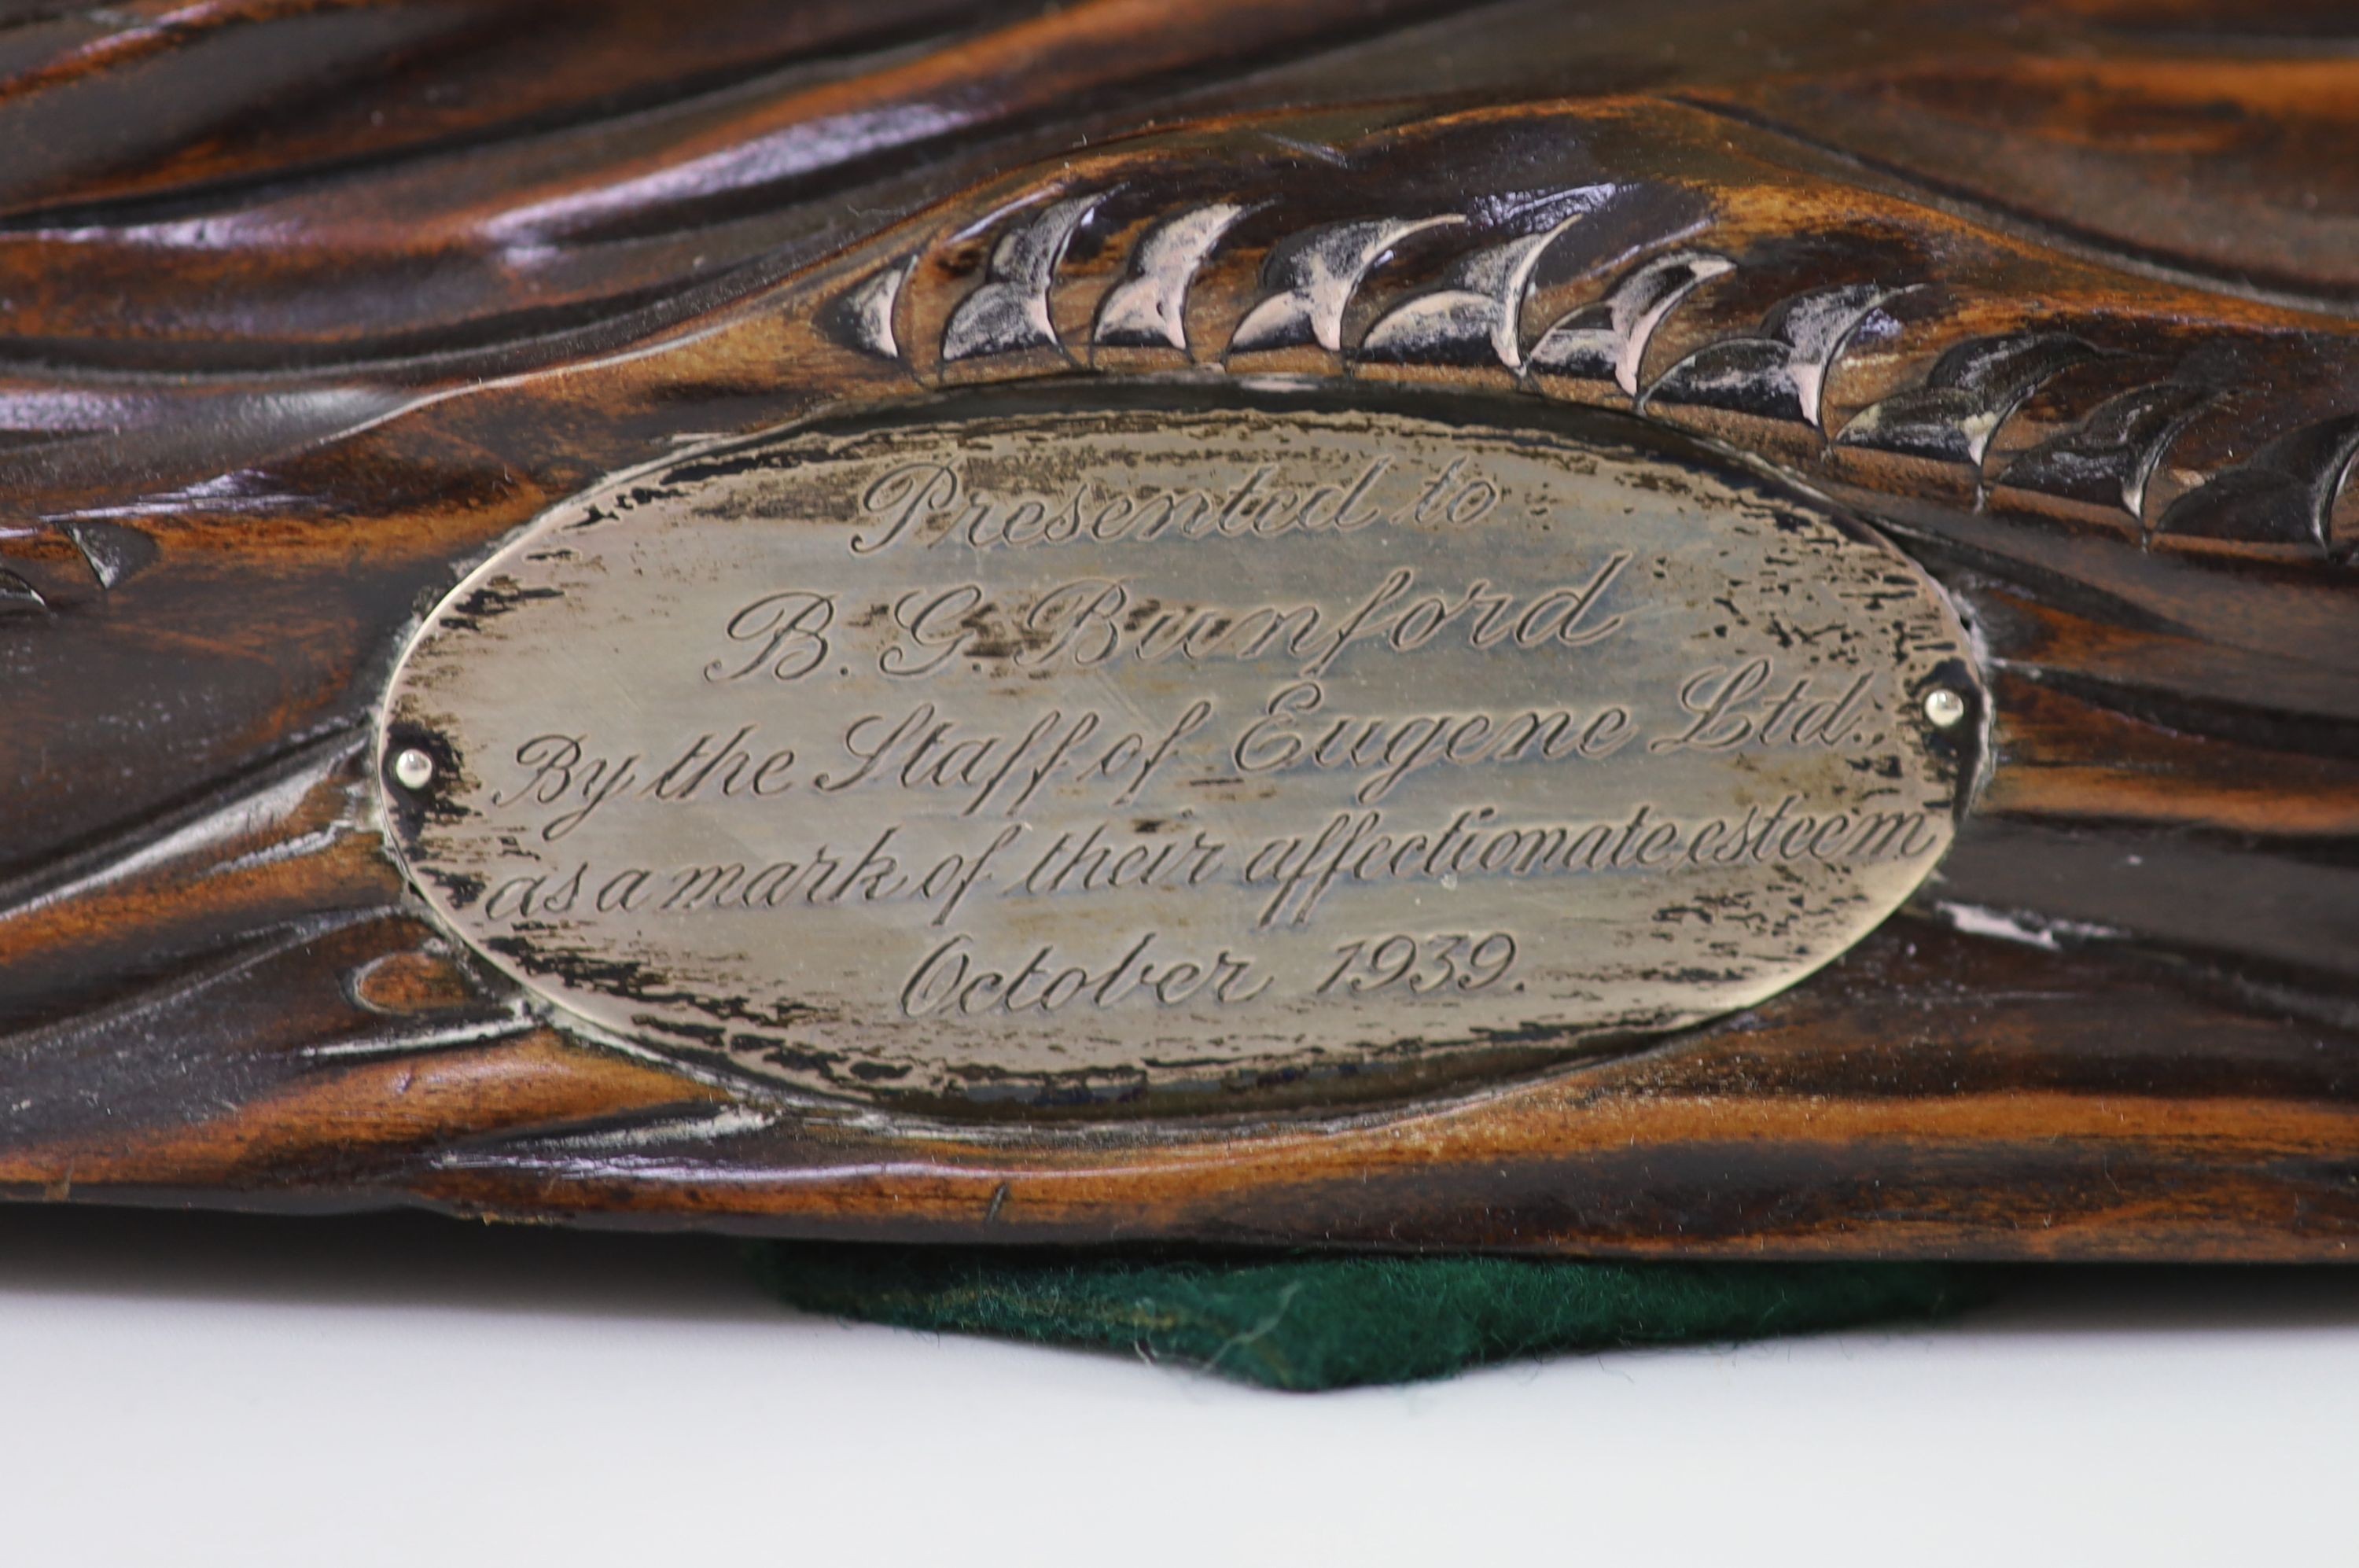 Presented to
B. G. Bunford
By the Staff of Eugene Ltd.,
as a mark of their affectionate esteem
October 1939.